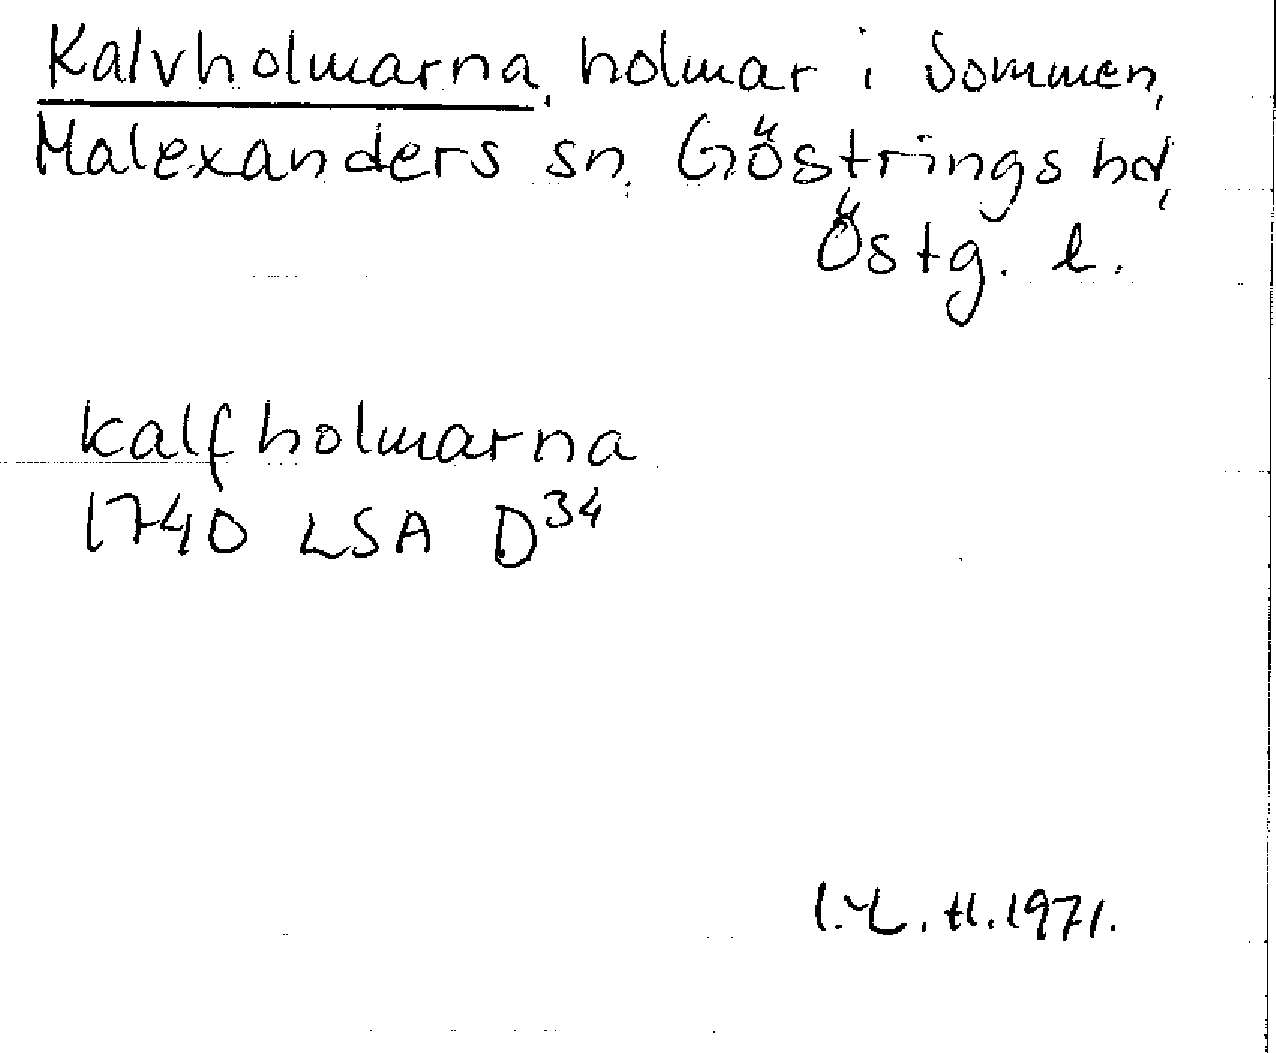 Kalvholmarna, holmar i Sommen,
Malexanders sn, Göstrings hd,
Östg. l.
kalfholmarna
1740 LSA D34
1971.